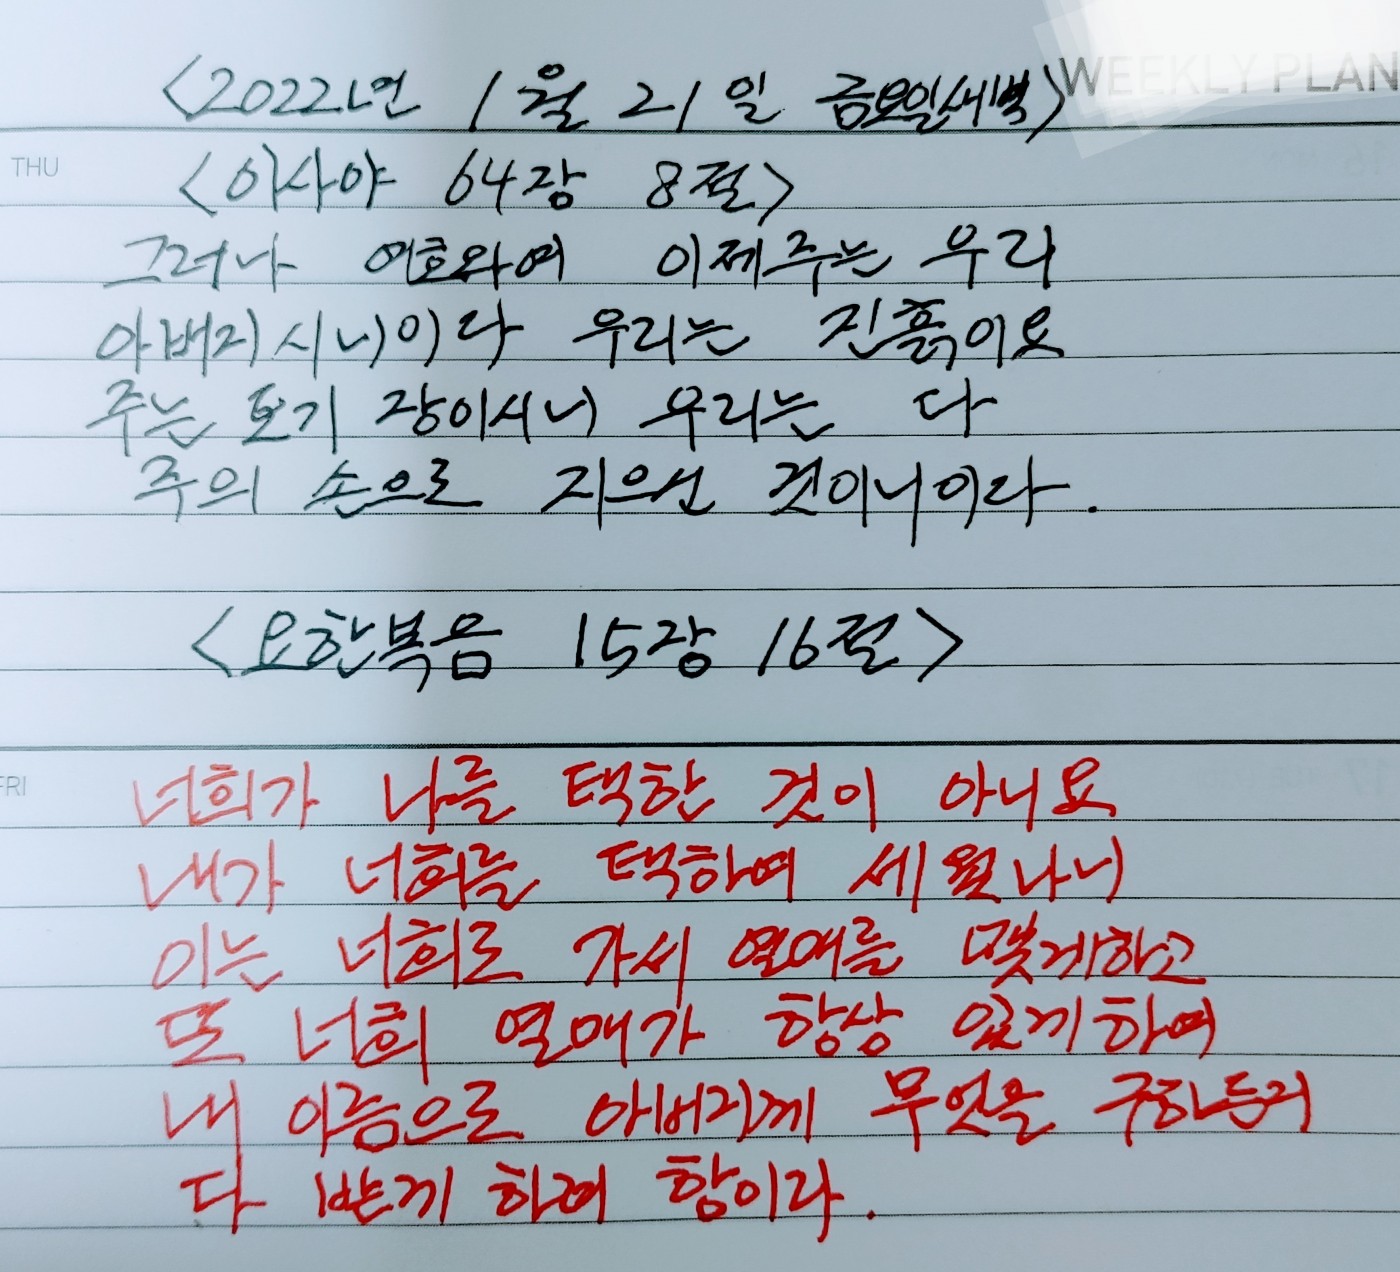 WEEKLY PLAN
<2022년 1월 21일 금요일새벽>
THU
<이사야 64장 8절>
그러나 여호와여 이제주는 우리
아버지시니이다 우리는 진흙이요
주는 토기장이시니 우리는 다
주의 손으로 지으신 것이니이다.
<요한복음 15장 16절>
FRI
너희가 나를 택한 것이 아니요
내가 너희를 택하여 세웠나니
이는 너희로 가서 열매를 맺게하고
또 너희 열매가 항상 있게하여
내 이름으로 아버지께 무엇을 구하든지
다 받게 하려 함이라.